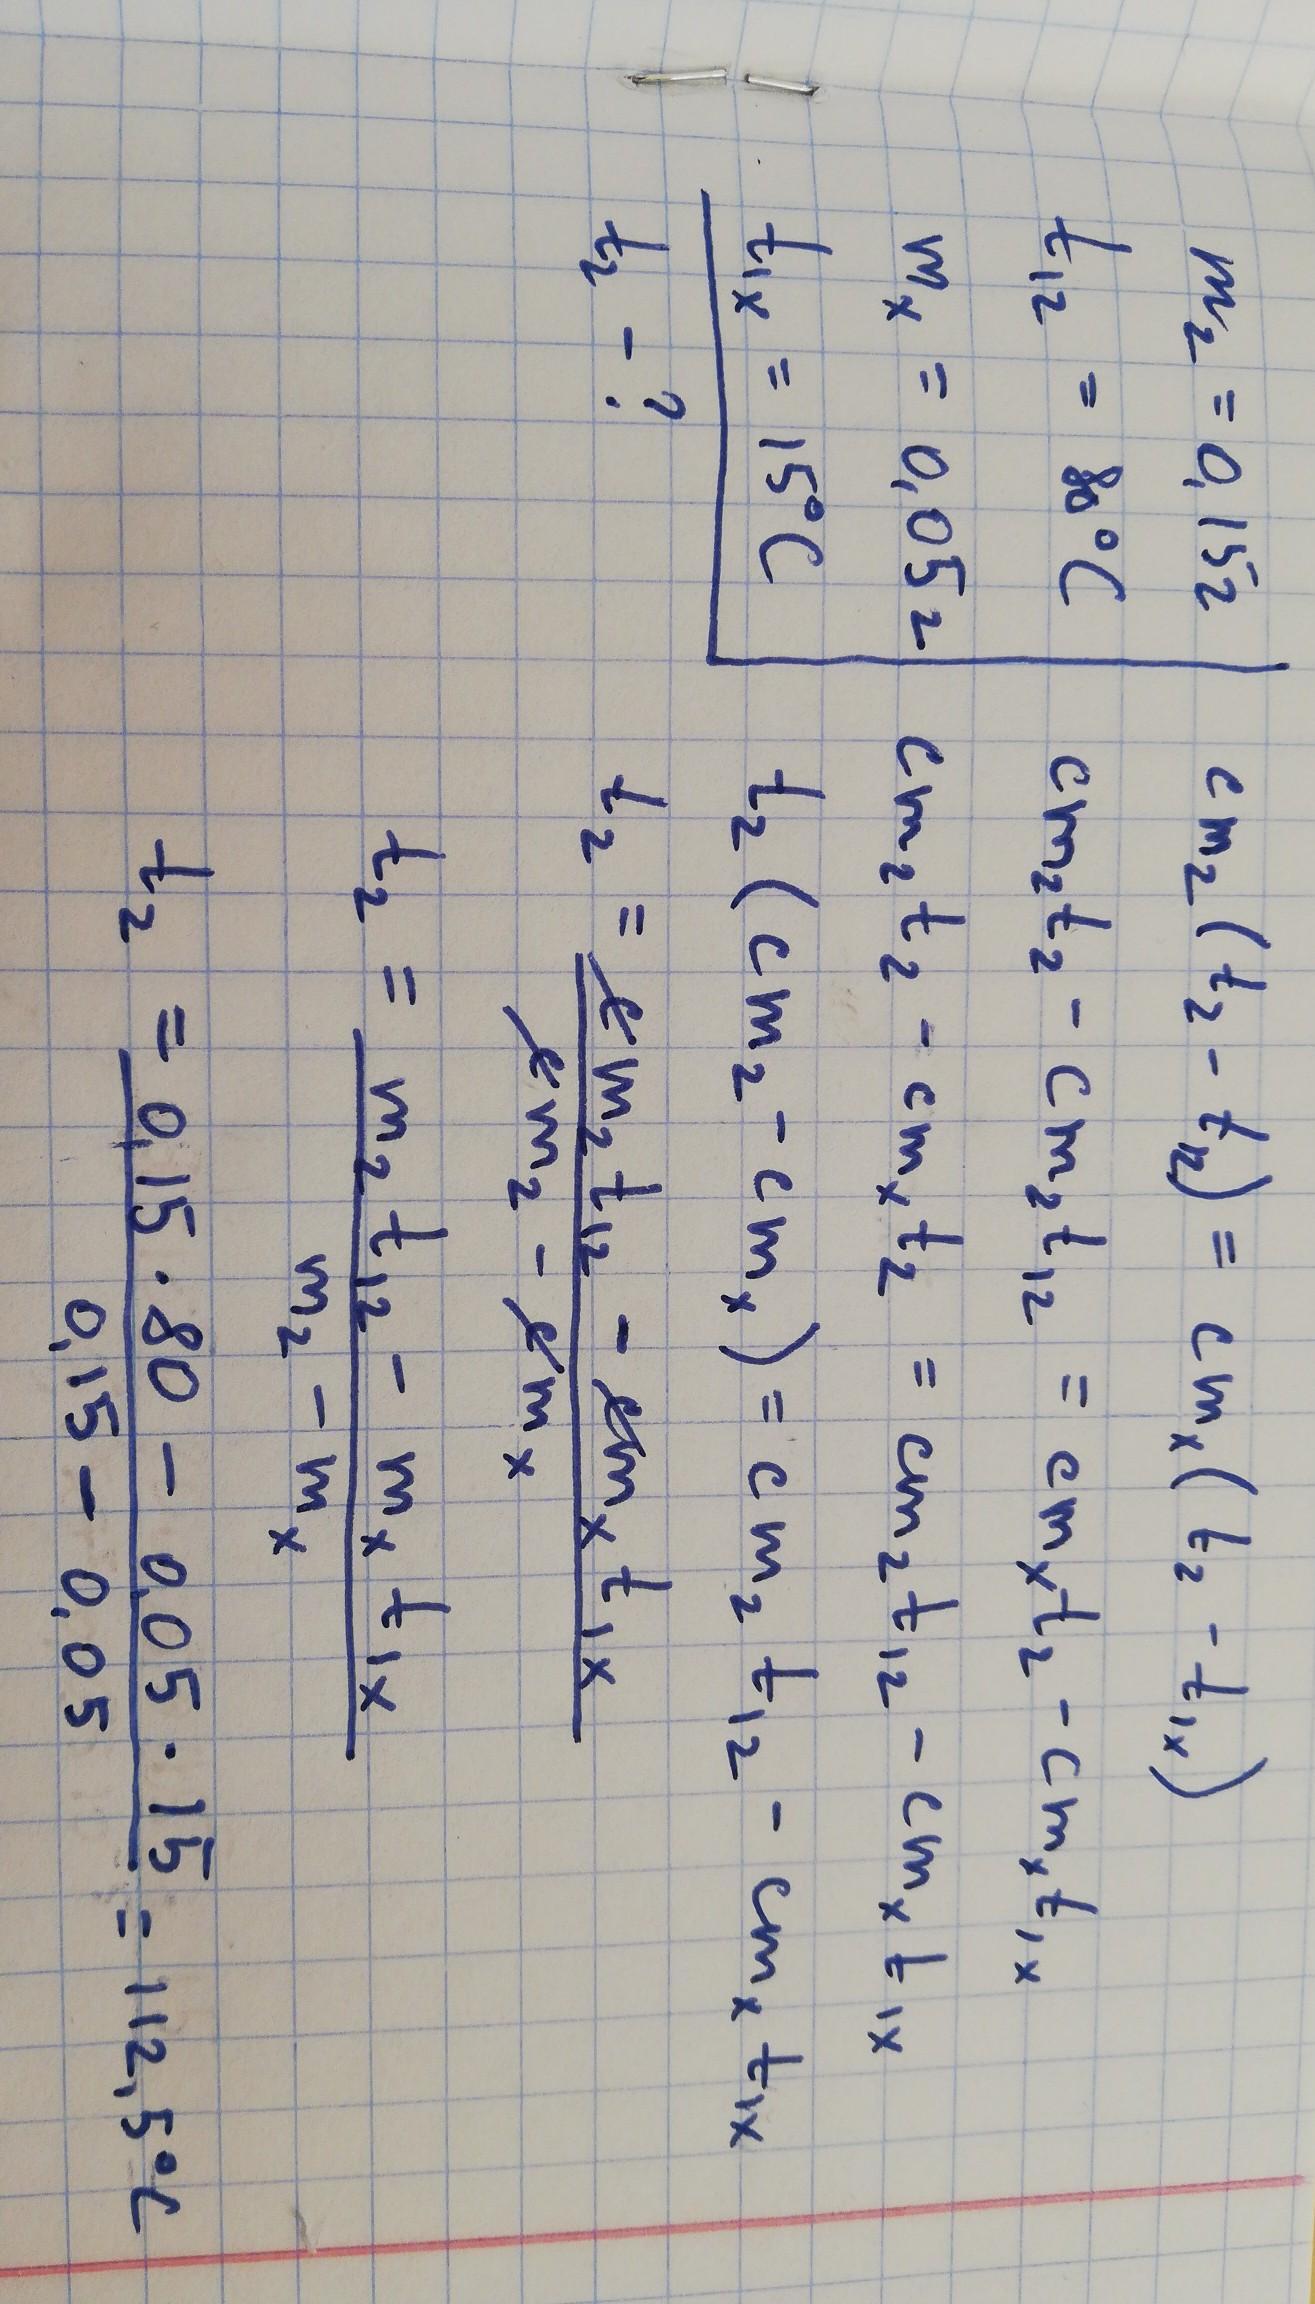 m₂ = 0,15г
t₁₂ = 80°C
mₓ = 0,05г
t₁ₓ = 15°C
t₂ - ?
cm₂(t₂ - t₁₂) = cmₓ(t₂ - t₁ₓ)
cm₂t₂ - cm₂t₁₂ = cmₓt₂ - cmₓt₁ₓ
cm₂t₂ - cmₓt₂ = cm₂t₁₂ - cmₓt₁ₓ
t₂(cm₂ - cmₓ) = cm₂t₁₂ - cmₓt₁ₓ
t₂ = cm₂t₁₂ - cmₓt₁ₓ
cm₂ - cmₓ
t₂ = m₂t₁₂ - mₓt₁ₓ
m₂ - mₓ
t₂ = 0,15 · 80 - 0,05 · 15 = 112,5°C
0,15 - 0,05